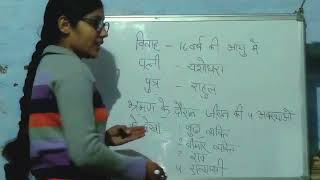 विवाह - 16 वर्ष की आयु में
पत्नी - यशोधरा
पुत्र - राहुल
भ्रमण के दौरान जीवन की 4 अवस्थाओं
को देखा वृद्ध व्यक्ति
2 बीमार व्यक्ति
3 शव
4 सन्यासी